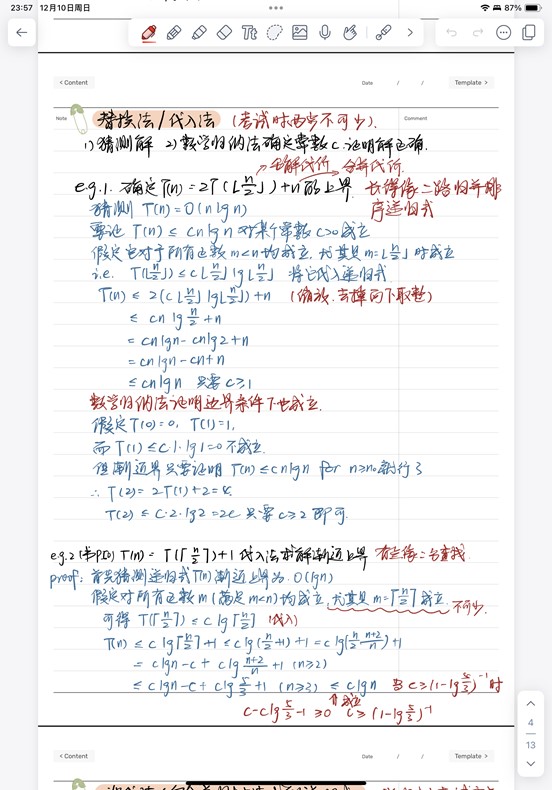 23:57 12月10日周日
87%
< Content
Date / /
Template >
Note
Comment
替换法/代入法 (考试时两步不可少).
1)猜测解 2)数学归纳法确定常数c,证明解正确.
e.g.1. 确定T(n)=2T(⌊n/2⌋)+n的上界. 长得像二路归并排
序递归式
猜测 T(n)=O(nlgn)
要证 T(n) ≤ cnlgn 对某个常数c>0成立
假定它对于所有正数m<n均成立,尤其是m=⌊n/2⌋时成立
i.e. T(⌊n/2⌋) ≤ c⌊n/2⌋lg⌊n/2⌋ 将它代入递归式
T(n) ≤ 2(c⌊n/2⌋lg⌊n/2⌋)+n (缩放,去掉向下取整)
≤ cn lg n/2 +n
= cnlgn-cnlg2+n
= cnlgn-cn+n
≤ cnlgn 只要c≥1
数学归纳法证明边界条件下也成立.
假定T(0)=0, T(1)=1,
而T(1) ≤ c·1·lg1=0不成立.
但渐近界只要证明 T(n)≤cnlgn for n≥n₀就行了
∴ T(2)=2T(1)+2=4.
T(2) ≤ c·2·lg2=2c 只要c≥2即可.
e.g.2 T(n)=T(⌈n/2⌉)+1 代入法求解渐近上界 有点像二分查找
proof: 首先猜测递归式T(n)渐近上界为O(lgn)
假定对所有正数m(满足m<n)均成立,尤其是m=⌈n/2⌉成立. 不可少.
可得T(⌈n/2⌉) ≤ c lg⌈n/2⌉ 代入)
T(n) ≤ c lg⌈n/2⌉+1 ≤ c lg(n/2+1)+1 = c lg(n/2·n+2/n)+1
= clgn-c+clg n+2/n +1 (n≥2)
≤ clgn-c+clg 5/3 +1 (n≥3) ≤ clgn 当c≥(1-lg5/3)⁻¹时
成立
c-clg5/3-1≥0 c≥(1-lg5/3)⁻¹
4
13
< Content
Date / /
Template >